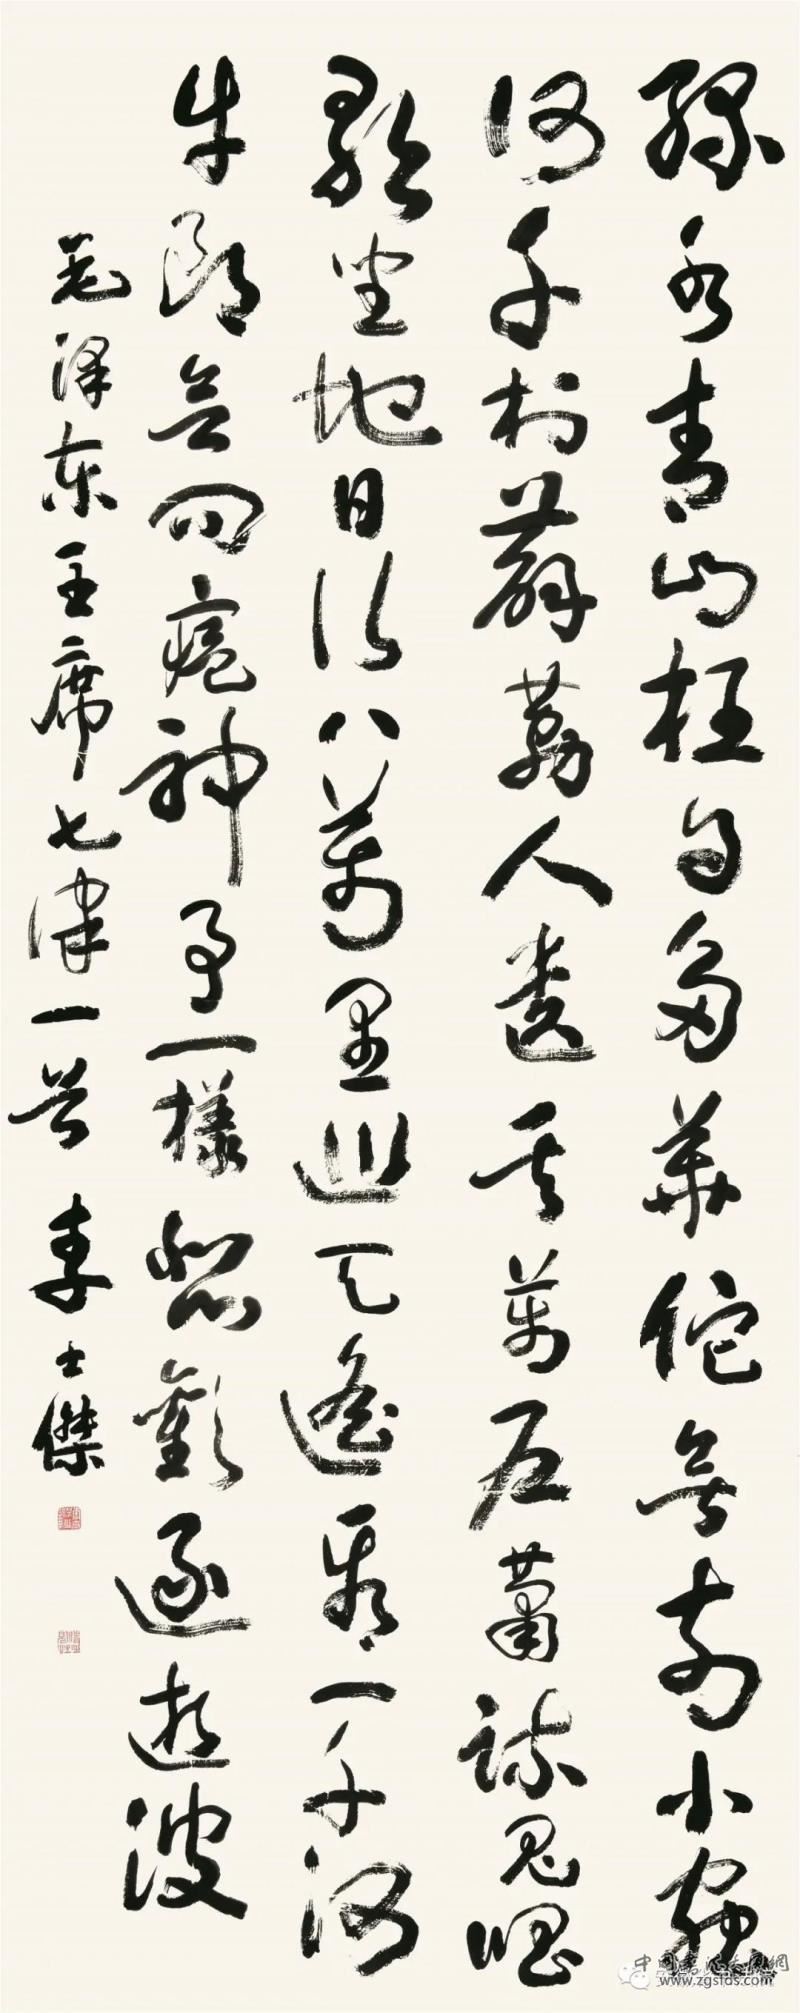 綠水青山枉自多華佗無奈小蟲
何千村薜荔人遺矢萬戶蕭疏鬼唱
歌坐地日行八萬里巡天遙看一千河
牛郎欲問瘟神事一樣悲歡逐逝波
毛澤東主席七律一首 李士傑
www.zgsfds.com